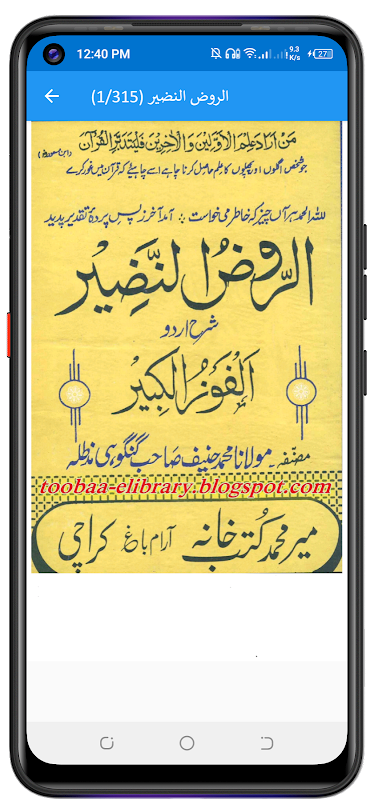 12:40 PM
9.3
K/s
27
الروض النضير (1/315)
من أراد علم الأولين والآخرين فليتدبر القرآن
(ابن مسعودؓ)
جو شخص اگلوں اور پچھلوں کا علم حاصل کرنا چاہے اسے چاہیئے کہ قرآن میں غور کرے
للہ الحمد ہر آں چیز کہ خاطر می خواست ؛ آمد آخر ز پس پردۂ تقدیر پدید
الرَّوضُ النَّضِير
شرح اردو
الفوزُ الكبير
مصنفہ ۔ مولانا محمد حنیف صاحب گنگوہی مدظلہ
toobaa-elibrary.blogspot.com
میر محمد کتب خانہ آرام باغ کراچی